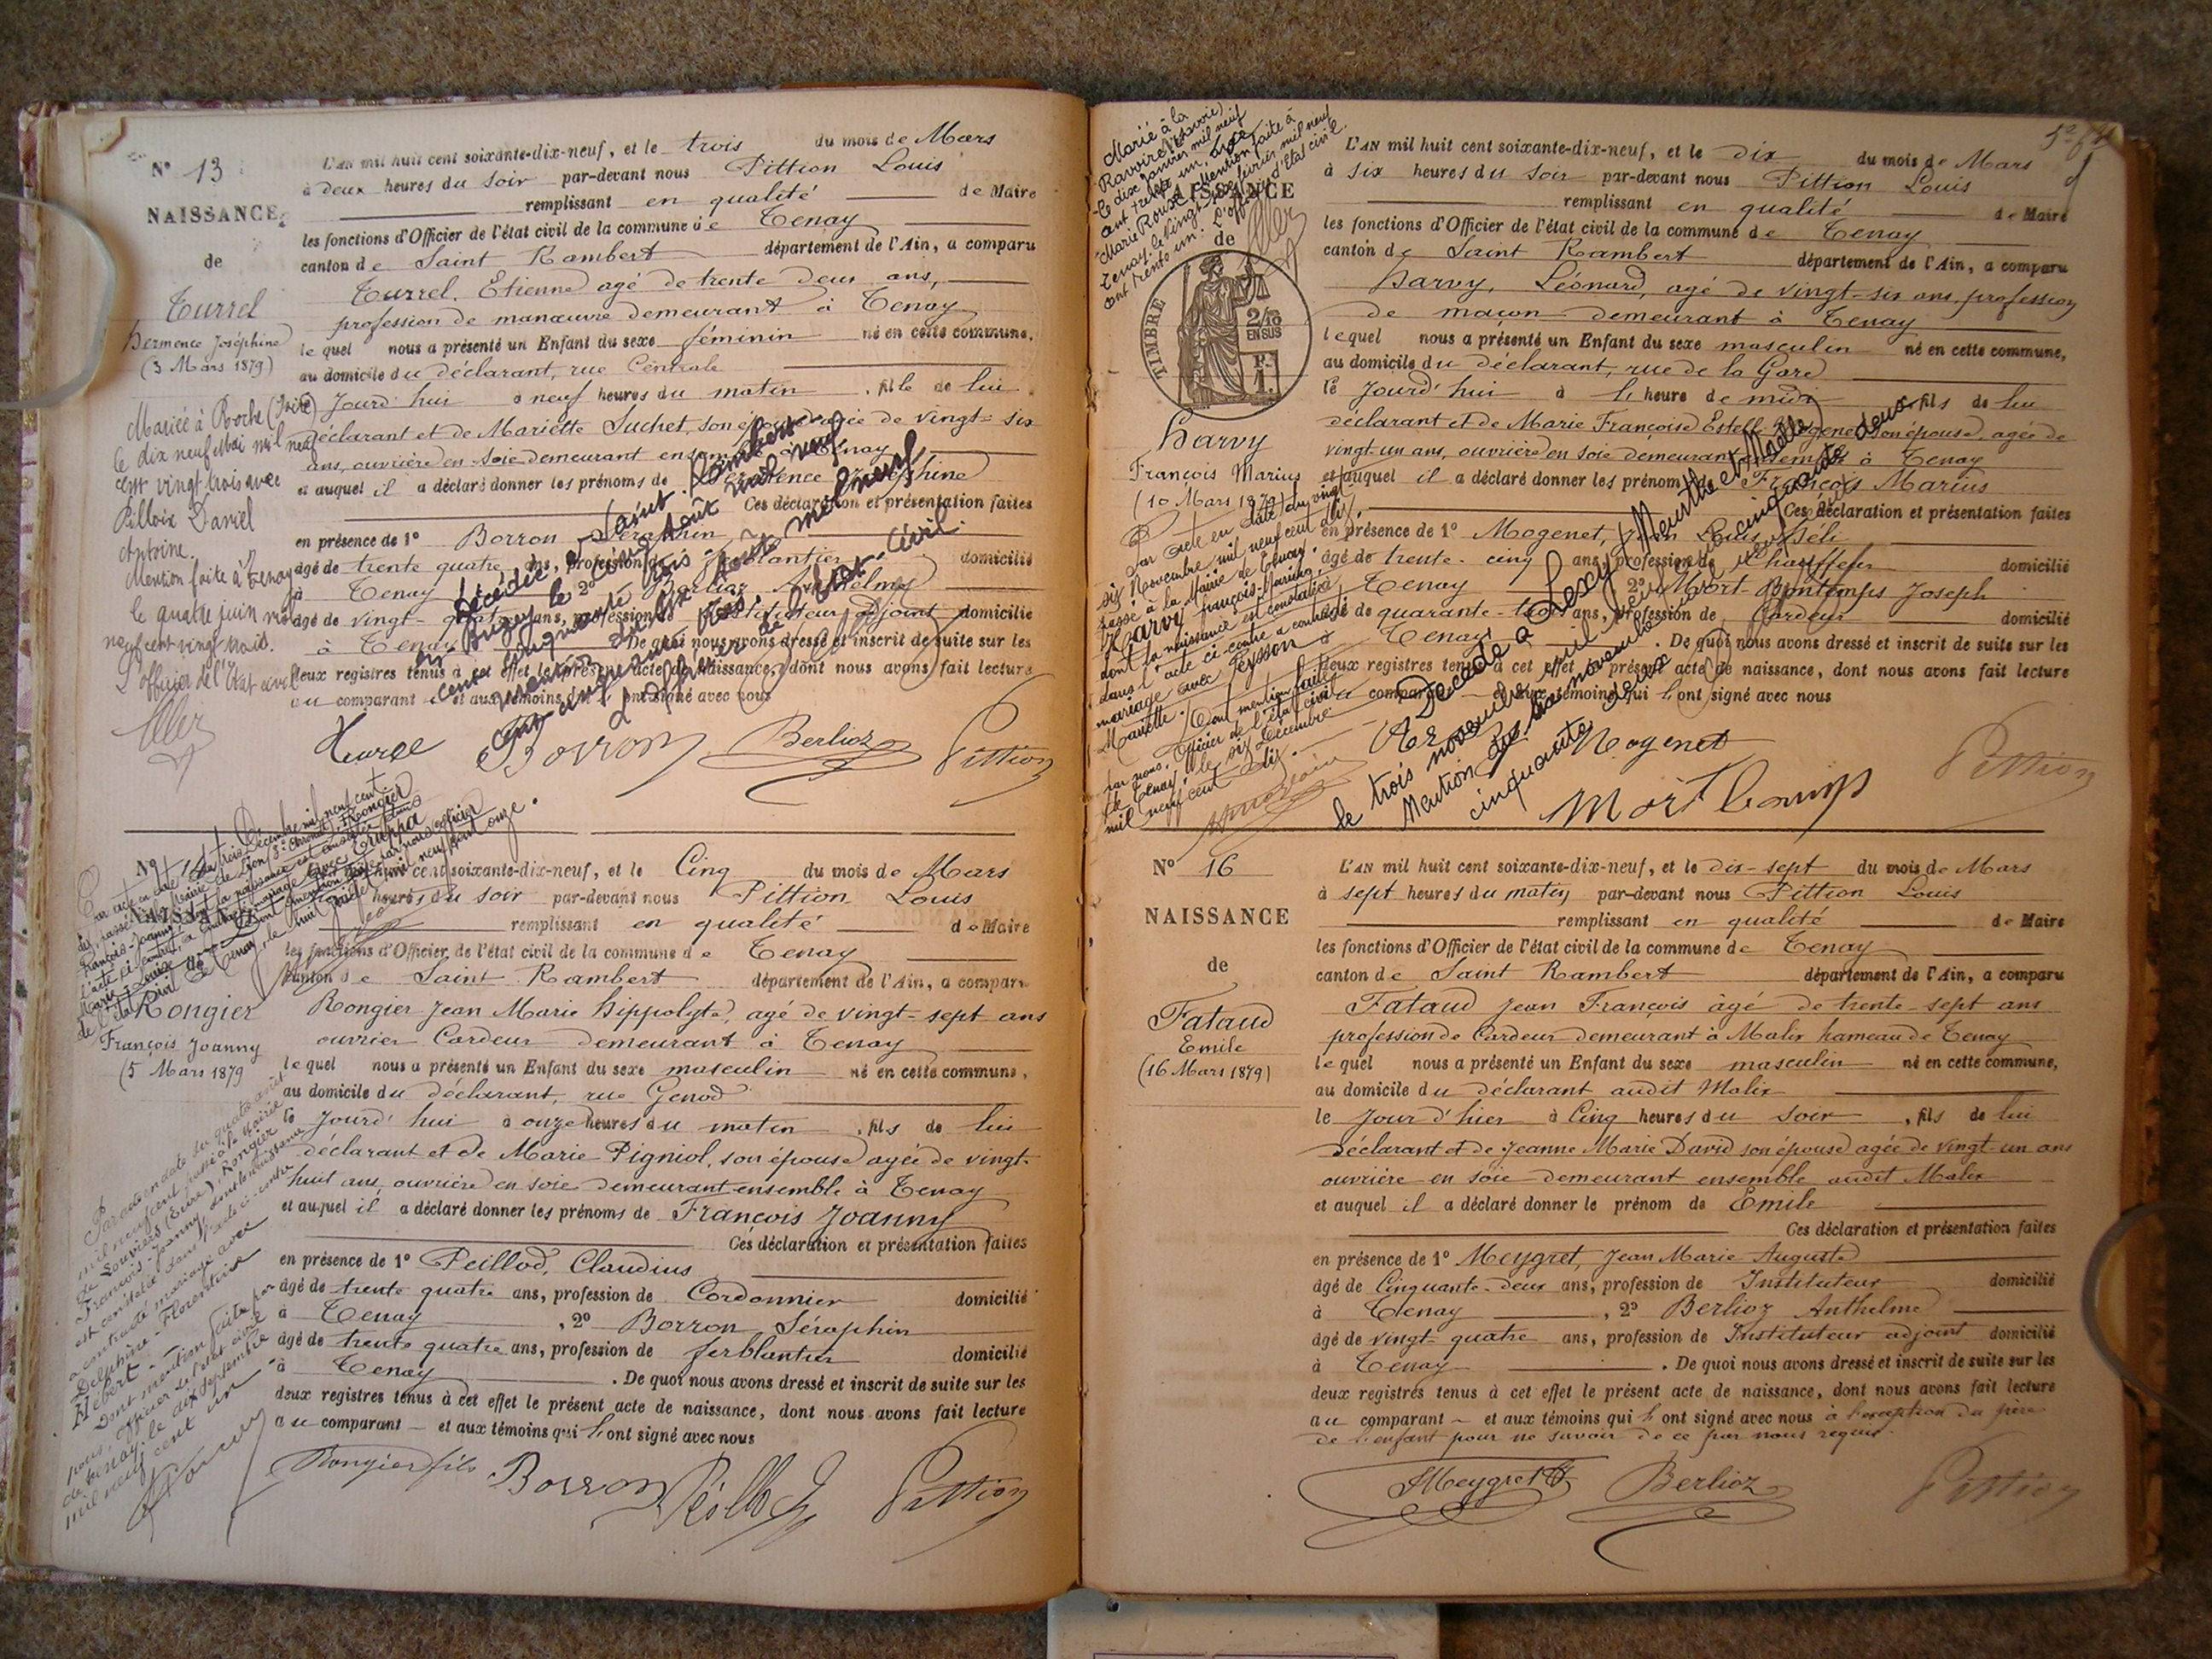 N° 13
NAISSANCE
de
Turrel
Hermence Joséphine
(3 Mars 1879)
Mariée à Roche (Isère)
le dix neuf Mai mil neuf
cent vingt trois avec
Pilloix Daniel
Antoine.
Mention faite à Tenay
le quatre juin mil
neuf cent vingt trois.
L'officier de l'état civil
L'AN mil huit cent soixante-dix-neuf, et le trois du mois de Mars
à deux heures du soir par-devant nous Pittion Louis
remplissant en qualité de Maire
les fonctions d'Officier de l'état civil de la commune de Tenay
canton de Saint Rambert département de l'Ain, a comparu
Turrel Etienne agé de trente deux ans,
profession de manœuvre demeurant à Tenay
lequel nous a présenté un Enfant du sexe féminin né en cette commune,
au domicile du déclarant, rue Centrale
le Jourd'hui à neuf heures du matin, fille de lui
déclarant et de Mariette Suchet, son épouse agée de vingt-six
ans, ouvrière en soie demeurant ensemble à Tenay
et auquel il a déclaré donner les prénoms de Hermence Joséphine
Ces déclaration et présentation faites
en présence de 1° Borron Séraphin
âgé de trente quatre ans, profession de ferblantier domicilié
à Tenay, 2° Berlioz Anthelme
âgé de vingt-quatre ans, profession de Instituteur adjoint domicilié
à Tenay. De quoi nous avons dressé et inscrit de suite sur les
deux registres tenus à cet effet le présent acte de naissance, dont nous avons fait lecture
au comparant et aux témoins qui l'ont signé avec nous
Décédée à Saint Rambert
en Bugey le cinq août mil neuf
cent cinquante trois
L'officier de l'état-civil
Turrel Borron Berlioz Pittion
N°
NAISSANCE
de
Rongier
François Joanny
(5 Mars 1879
Par acte en date du trois Décembre mil neuf cent
dix, passé à la Mairie de Lyon (3e arrondt), Rongier
François-Joanny, dont la naissance est constatée dans
l'acte ci-contre, a contracté mariage avec Truppa
Marie-Louise. Dont mention faite par nous officier
de l'état civil de Tenay, le huit mil neuf cent onze.
Par acte en date du quatre août
mil neuf cent passé à la Mairie
de Louviers (Eure), Rongier
François-Joanny, dont la naissance
est constatée dans l'acte ci-contre
a contracté mariage avec
Delphine-Florentine
Hébert.
Dont mention faite par
nous, officier de l'état civil
de Tenay, le dix septembre
mil neuf cent un.
L'AN mil huit cent soixante-dix-neuf, et le Cinq du mois de Mars
heures du soir par-devant nous Pittion Louis
remplissant en qualité de Maire
les fonctions d'Officier de l'état civil de la commune de Tenay
canton de Saint Rambert département de l'Ain, a comparu
Rongier Jean Marie Hippolyte, agé de vingt-sept ans
ouvrier Cardeur demeurant à Tenay
lequel nous a présenté un Enfant du sexe masculin né en cette commune,
au domicile du déclarant, rue Genod
le Jourd'hui à onze heures du matin, fils de lui
déclarant et de Marie Pigniol, son épouse agée de vingt-
huit ans, ouvrière en soie demeurant ensemble à Tenay
et auquel il a déclaré donner les prénoms de François Joanny
Ces déclaration et présentation faites
en présence de 1° Peillod, Claudius
âgé de trente quatre ans, profession de Cordonnier domicilié
à Tenay, 2° Borron Séraphin
âgé de trente quatre ans, profession de ferblantier domicilié
à Tenay. De quoi nous avons dressé et inscrit de suite sur les
deux registres tenus à cet effet le présent acte de naissance, dont nous avons fait lecture
au comparant et aux témoins qui l'ont signé avec nous
Rongier fils Borron Peillod Pittion
Marié à la
Ravoire (Savoie)
le dix janvier mil neuf
cent trente un, avec
Marie Rouse. Mention faite à
Tenay, le vingt février mil neuf
cent trente un. L'officier d'état civil
NAISSANCE
de
TIMBRE
2/10
EN SUS
F.
1.
Harvy
François Marius
(10 Mars 1879)
Par acte en date du vingt
six Novembre mil neuf cent dix,
passé à la Mairie de Tenay,
Harvy François-Marius,
dont la naissance est constatée
dans l'acte ci-contre a contracté
mariage avec Peysson
Mariette. Dont mention faite
par nous, Officier de l'état civil
de Tenay, le six Décembre
mil neuf cent dix.
L'AN mil huit cent soixante-dix-neuf, et le dix du mois de Mars
à six heures du soir par-devant nous Pittion Louis
remplissant en qualité de Maire
les fonctions d'Officier de l'état civil de la commune de Tenay
canton de Saint Rambert département de l'Ain, a comparu
Harvy, Léonard, agé de vingt-six ans, profession
de maçon demeurant à Tenay
lequel nous a présenté un Enfant du sexe masculin né en cette commune,
au domicile du déclarant, rue de la Gare
le Jourd'hui à heure de midi, fils de lui
déclarant et de Marie Françoise Estelle Mogenet son épouse, agée de
vingt-un ans, ouvrière en soie demeurant ensemble à Tenay
et auquel il a déclaré donner les prénoms de François Marius
Ces déclaration et présentation faites
en présence de 1° Mogenet, Jean Louis
âgé de trente-cinq ans, profession de Chauffeur domicilié
à Tenay, 2° Mort-Bontemps Joseph
âgé de quarante-trois ans, profession de Cardeur domicilié
à Tenay. De quoi nous avons dressé et inscrit de suite sur les
deux registres tenus à cet effet le présent acte de naissance, dont nous avons fait lecture
au comparant et aux témoins qui l'ont signé avec nous
Décédé à Lexy (Meurthe et Moselle)
le trois novembre mil neuf cent cinquante deux
Mention du dix novembre mil neuf cent
cinquante deux
Mogenet Mort Bontemps Pittion
N° 16
NAISSANCE
de
Fataud
Emile
(16 Mars 1879)
L'AN mil huit cent soixante-dix-neuf, et le dix-sept du mois de Mars
à sept heures du matin par-devant nous Pittion Louis
remplissant en qualité de Maire
les fonctions d'Officier de l'état civil de la commune de Tenay
canton de Saint Rambert département de l'Ain, a comparu
Fataud Jean François âgé de trente-sept ans
profession de Cardeur demeurant à Malix hameau de Tenay
lequel nous a présenté un Enfant du sexe masculin né en cette commune,
au domicile du déclarant audit Malix
le Jour d'hier à Cinq heures du soir, fils de lui
déclarant et de Jeanne Marie David son épouse agée de vingt-un ans
ouvrière en soie demeurant ensemble audit Malix
et auquel il a déclaré donner le prénom de Emile
Ces déclaration et présentation faites
en présence de 1° Meygret, Jean Marie Auguste
âgé de Cinquante-deux ans, profession de Instituteur domicilié
à Tenay, 2° Berlioz Anthelme
âgé de vingt-quatre ans, profession de Instituteur adjoint domicilié
à Tenay. De quoi nous avons dressé et inscrit de suite sur les
deux registres tenus à cet effet le présent acte de naissance, dont nous avons fait lecture
au comparant et aux témoins qui l'ont signé avec nous à l'exception du père
de l'enfant pour ne savoir de ce par nous requis.
Meygret Berlioz Pittion